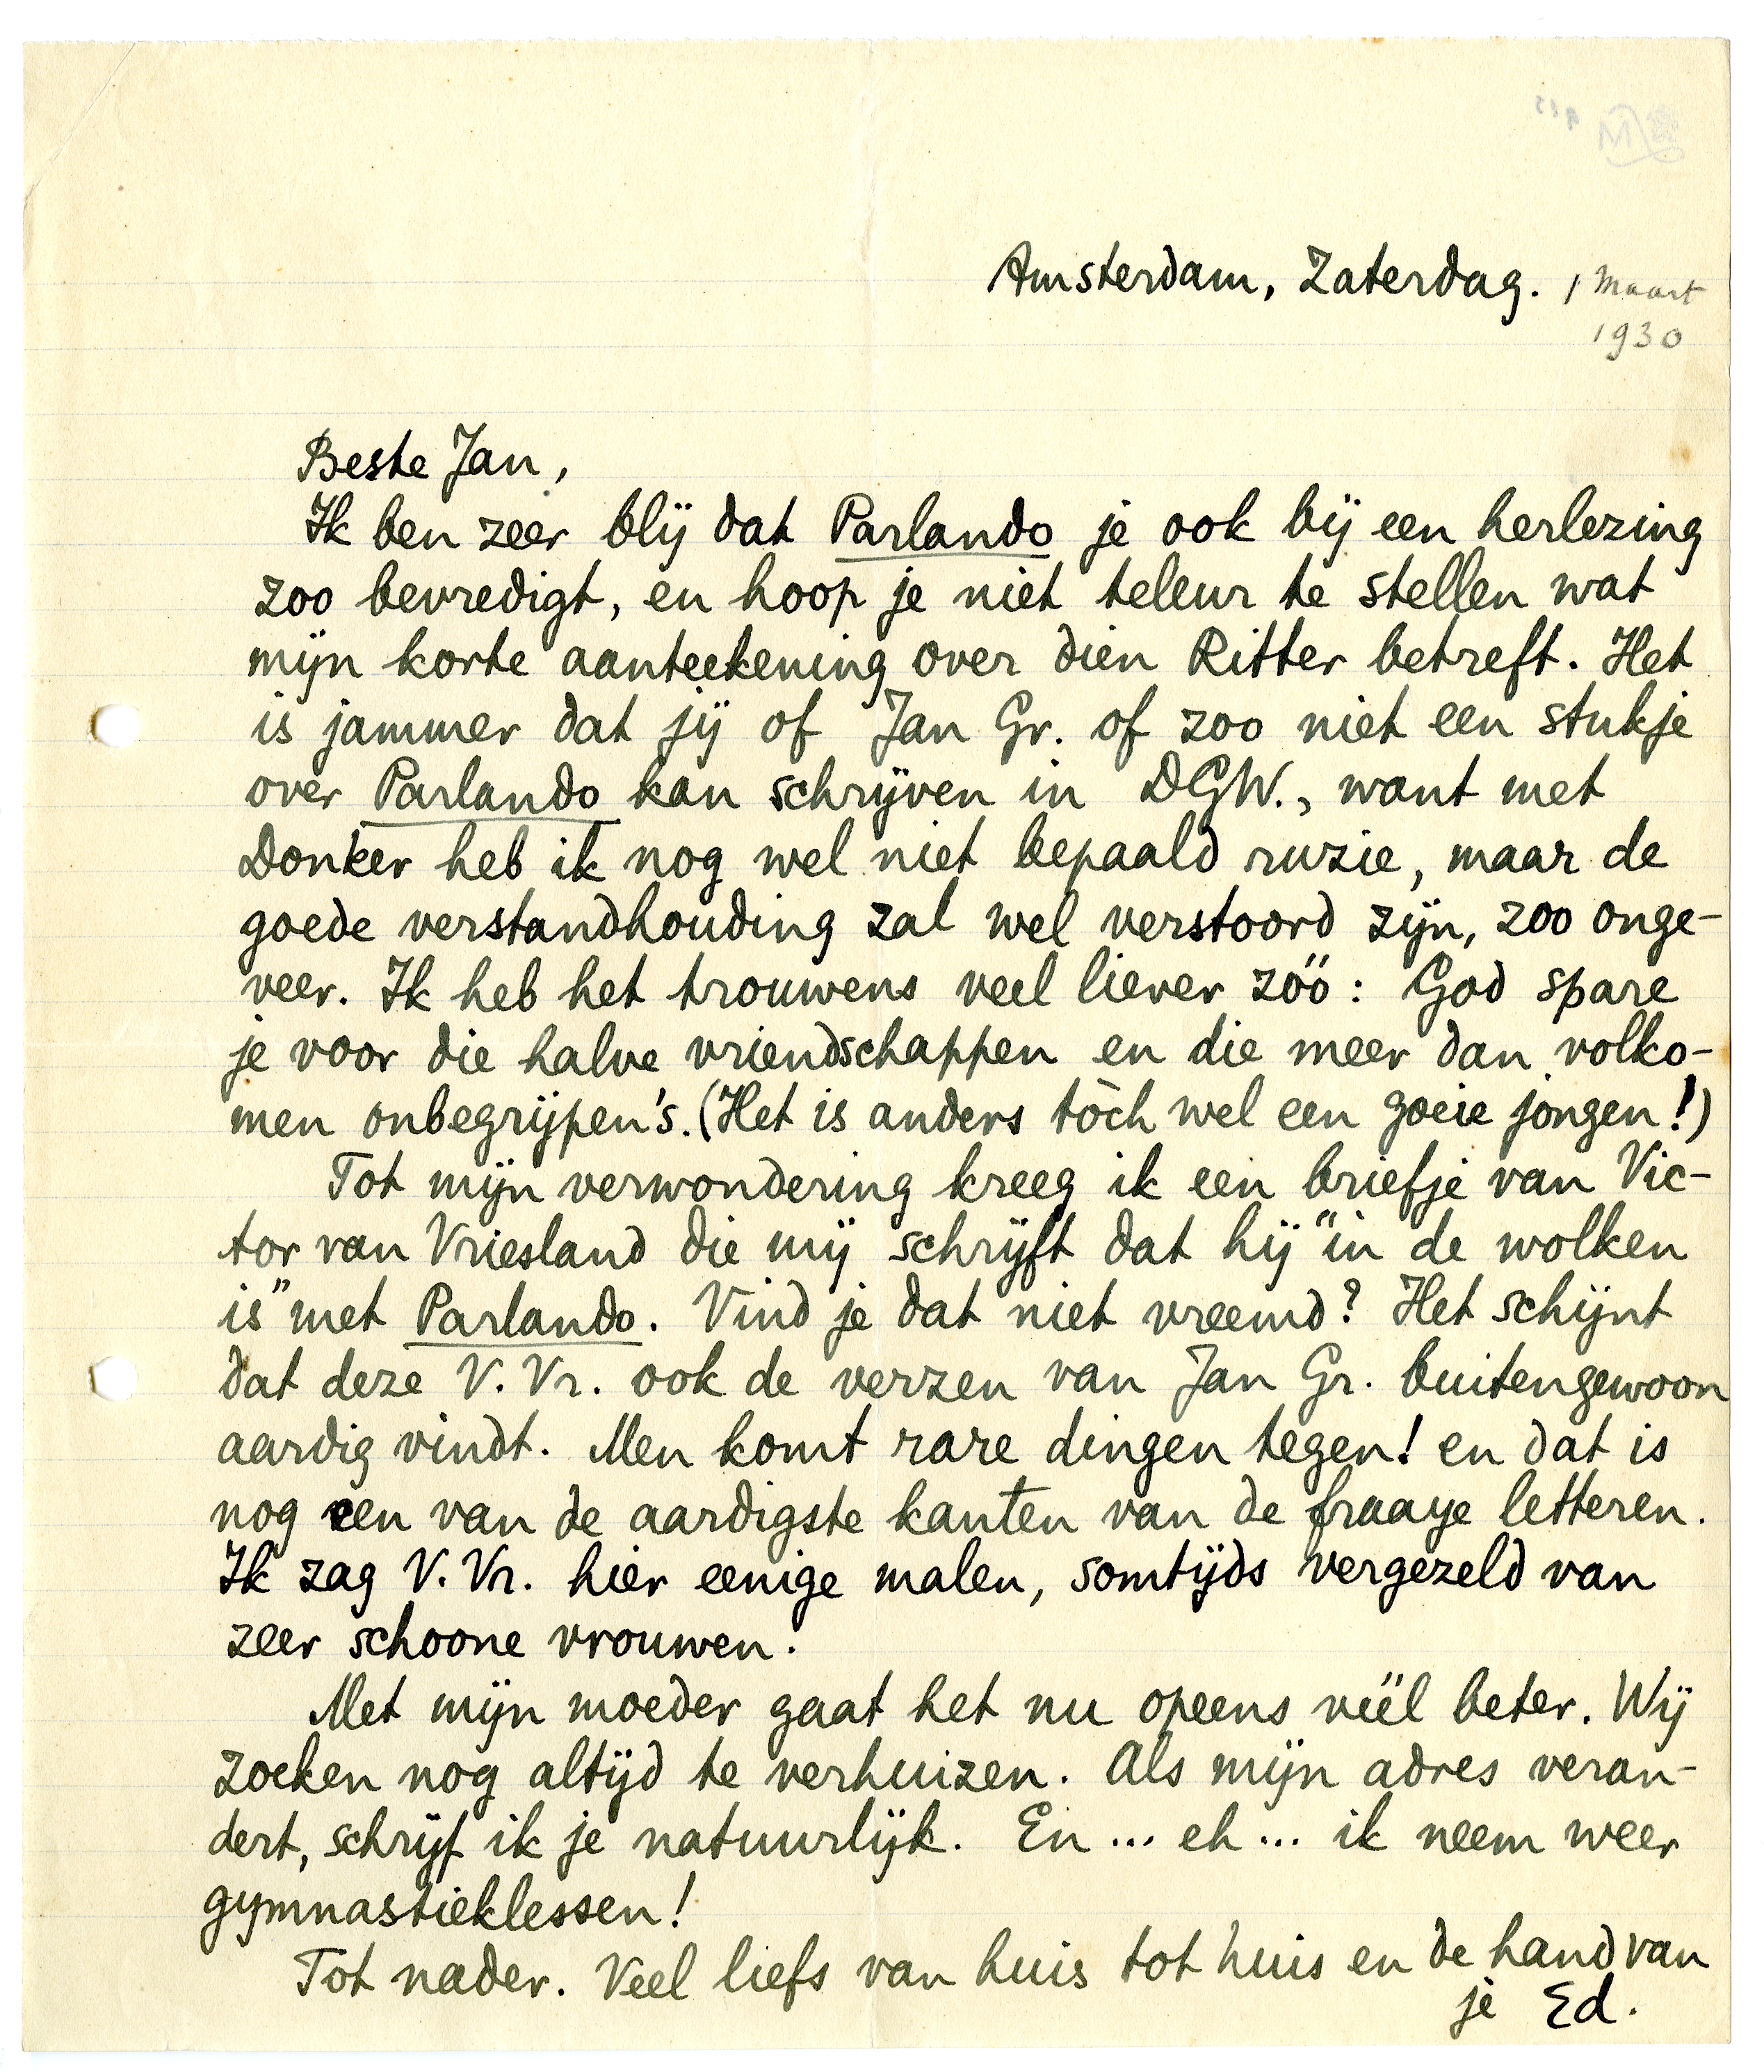 Amsterdam, Zaterdag. 1 Maart
1930
Beste Jan,
Ik ben zeer blij dat Parlando je ook bij een herlezing
zoo bevredigt, en hoop je niet teleur te stellen wat
mijn korte aanteekening over dien Ritter betreft. Het
is jammer dat jij of Jan Gr. of zoo niet een stukje
over Parlando kan schrijven in DGW., want met
Donker heb ik nog wel niet bepaald ruzie, maar de
goede verstandhouding zal wel verstoord zijn, zoo onge-
veer. Ik heb het trouwens veel liever zóó: God spare
je voor die halve vriendschappen en die meer dan volko-
men onbegrijpen's. (Het is anders tòch wel een goeie jongen!)
Tot mijn verwondering kreeg ik een briefje van Vic-
tor van Vriesland die mij schrijft dat hij "in de wolken
is" met Parlando. Vind je dat niet vreemd? Het schijnt
dat deze V. Vr. ook de verzen van Jan Gr. buitengewoon
aardig vindt. Men komt rare dingen tegen! en dat is
nog een van de aardigste kanten van de fraaye letteren.
Ik zag V. Vr. hier eenige malen, somtijds vergezeld van
zeer schoone vrouwen.
Met mijn moeder gaat het nu opeens véél beter. Wij
zoeken nog altijd te verhuizen. Als mijn adres veran-
dert, schrijf ik je natuurlijk. En... eh... ik neem weer
gymnastieklessen!
Tot nader. Veel liefs van huis tot huis en de hand van
je Ed.